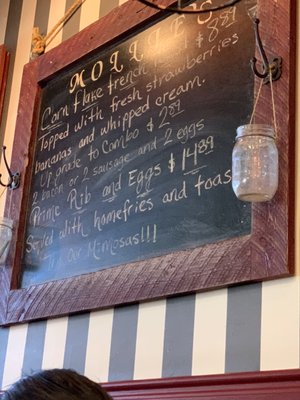 MOLLIES
Corn flake french toast $8.89
Topped with fresh strawberries
bananas and whipped cream.
Upgrade to Combo $2.89
2 bacon or 2 sausage and 2 eggs
Prime Rib and Eggs $14.89
Served with homefries and toast
Try our Mimosas!!!